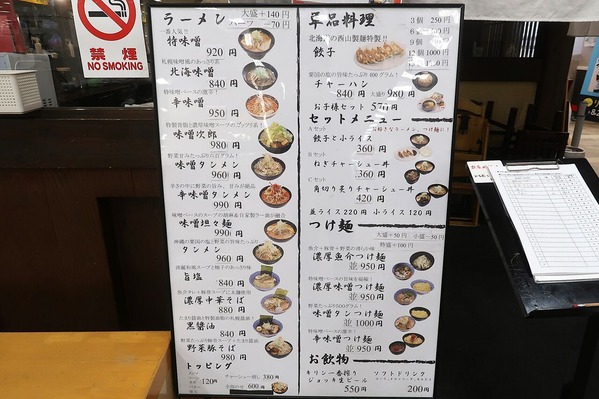 禁煙
NO SMOKING
ラーメン 大盛+140円
ハーフ-70円
一番人気!!
特味噌
920円
札幌味噌風のあっさり系
北海味噌
840円
特味噌ベースの激辛!
辛味噌
950円
味噌次郎
980円
味噌タンメン
960円
辛さの中に野菜の旨み、甘みが絶品
辛味噌タンメン
990円
味噌坦々麺
990円
沖縄の粟国の塩と野菜の旨味たっぷり
タンメン
960円
旨塩
840円
濃厚中華そば
880円
黒醤油
840円
野菜豚そば
980円
トッピング
120円
チャーシュー増し 380円
全部のせ 600円
単品料理
3個 250円
北海道の西山製麺特製!!
餃子
粟国の塩の旨味たっぷり400グラム!
チャーハン
840円 大盛り980円
お子様セット 570円
セットメニュー
Aセット
餃子と小ライス
360円
Bセット
ねぎチャーシュー丼
360円
Cセット
角切り炙りチャーシュー丼
420円
並ライス220円 小ライス120円
つけ麺
大盛+50円 小盛-50円
特盛+100円
魚介+豚骨+野菜の滑らか味
濃厚魚介つけ麺
並950円
濃厚味噌つけ麺
並950円
野菜たっぷり500グラム!
味噌タンつけ麺
並1000円
特味噌ベースの激辛!
辛味噌つけ麺
並950円
お飲物
キリン一番搾り
ジョッキ生ビール
550円
ソフトドリンク
200円